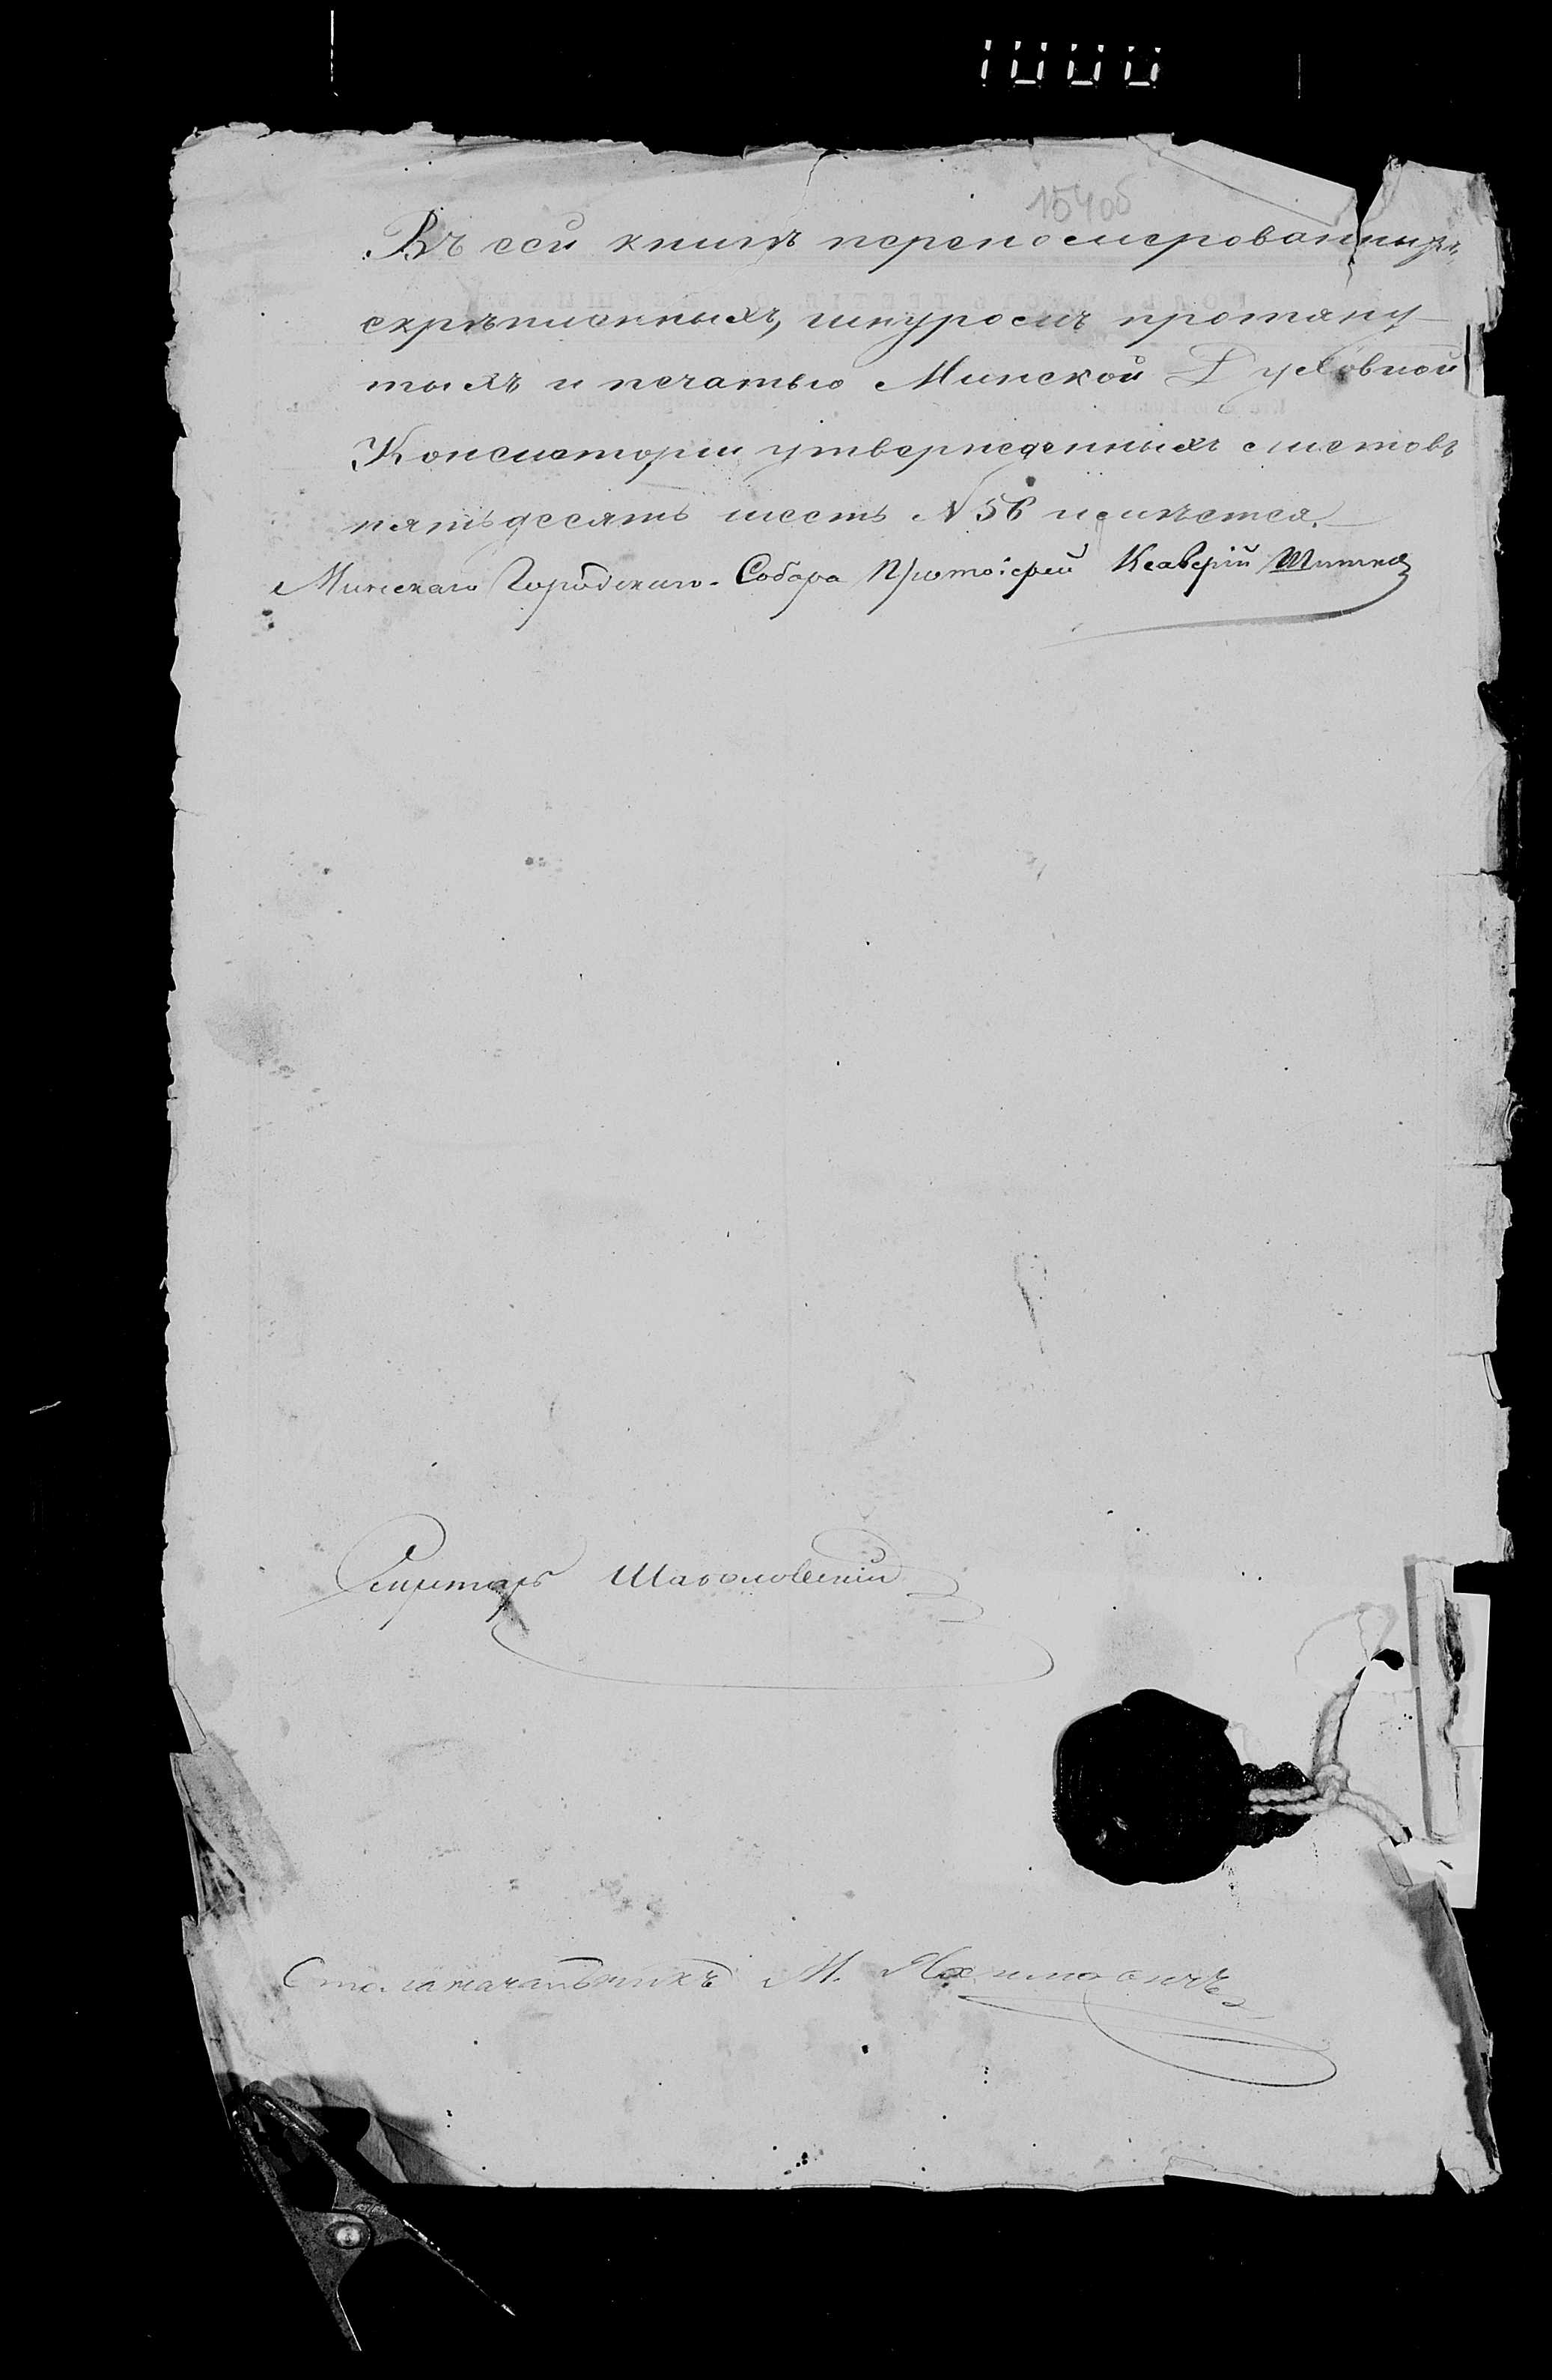 154об
Въ сей книгѣ переномерованныхъ,
скрѣпленныхъ, шнуромъ протяну-
тыхъ и печатью Минской Духовной
Консисторіи утвержденныхъ листовъ
пятьдесятъ шесть N 56 имѣется.
Минскаго Городскаго Собора Протоіерей Ксаверій
Секретарь
Столоначальникъ М.